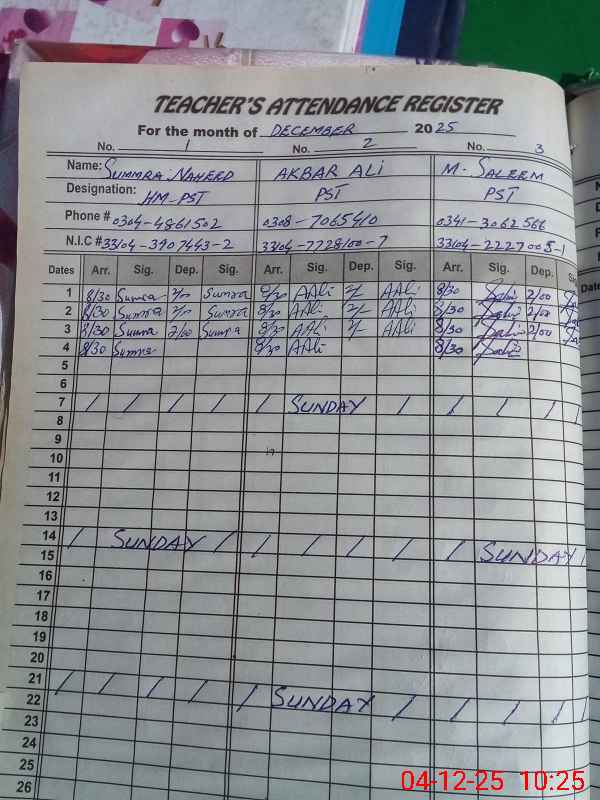 TEACHER'S ATTENDANCE REGISTER
For the month of DECEMBER 2025
No. 1 No. 2 No. 3
Name: SUMMRA NAHEED AKBAR ALI M. SALEEM
Designation: HM-PST PST PST
Phone # 0304-4861502 0308-7065410 0341-3062566
N.I.C # 33104-3907443-2 33104-7728100-7 33104-2227005-1
Dates Arr. Sig. Dep. Sig. Arr. Sig. Dep. Sig. Arr. Sig. Dep.
1 8/30 Sumra Sumra 8/30 AAli AAli 8/30 2/00
2 8/30 Sumra Sumra 8/30 AAli AAli 8/30 2/00
3 8/30 Sumra 2/00 Sumra 8/30 AAli AAli 8/30 2/00
4 8/30 Sumra 8/30 AAli 8/30
5
6
7 / / / / / SUNDAY / / / /
8
9
10
11
12
13
14 / SUNDAY / / / / / / SUNDAY /
15
16
17
18
19
20
21 / / / / / SUNDAY / / / /
22
23
24
25
26
04-12-25 10:25